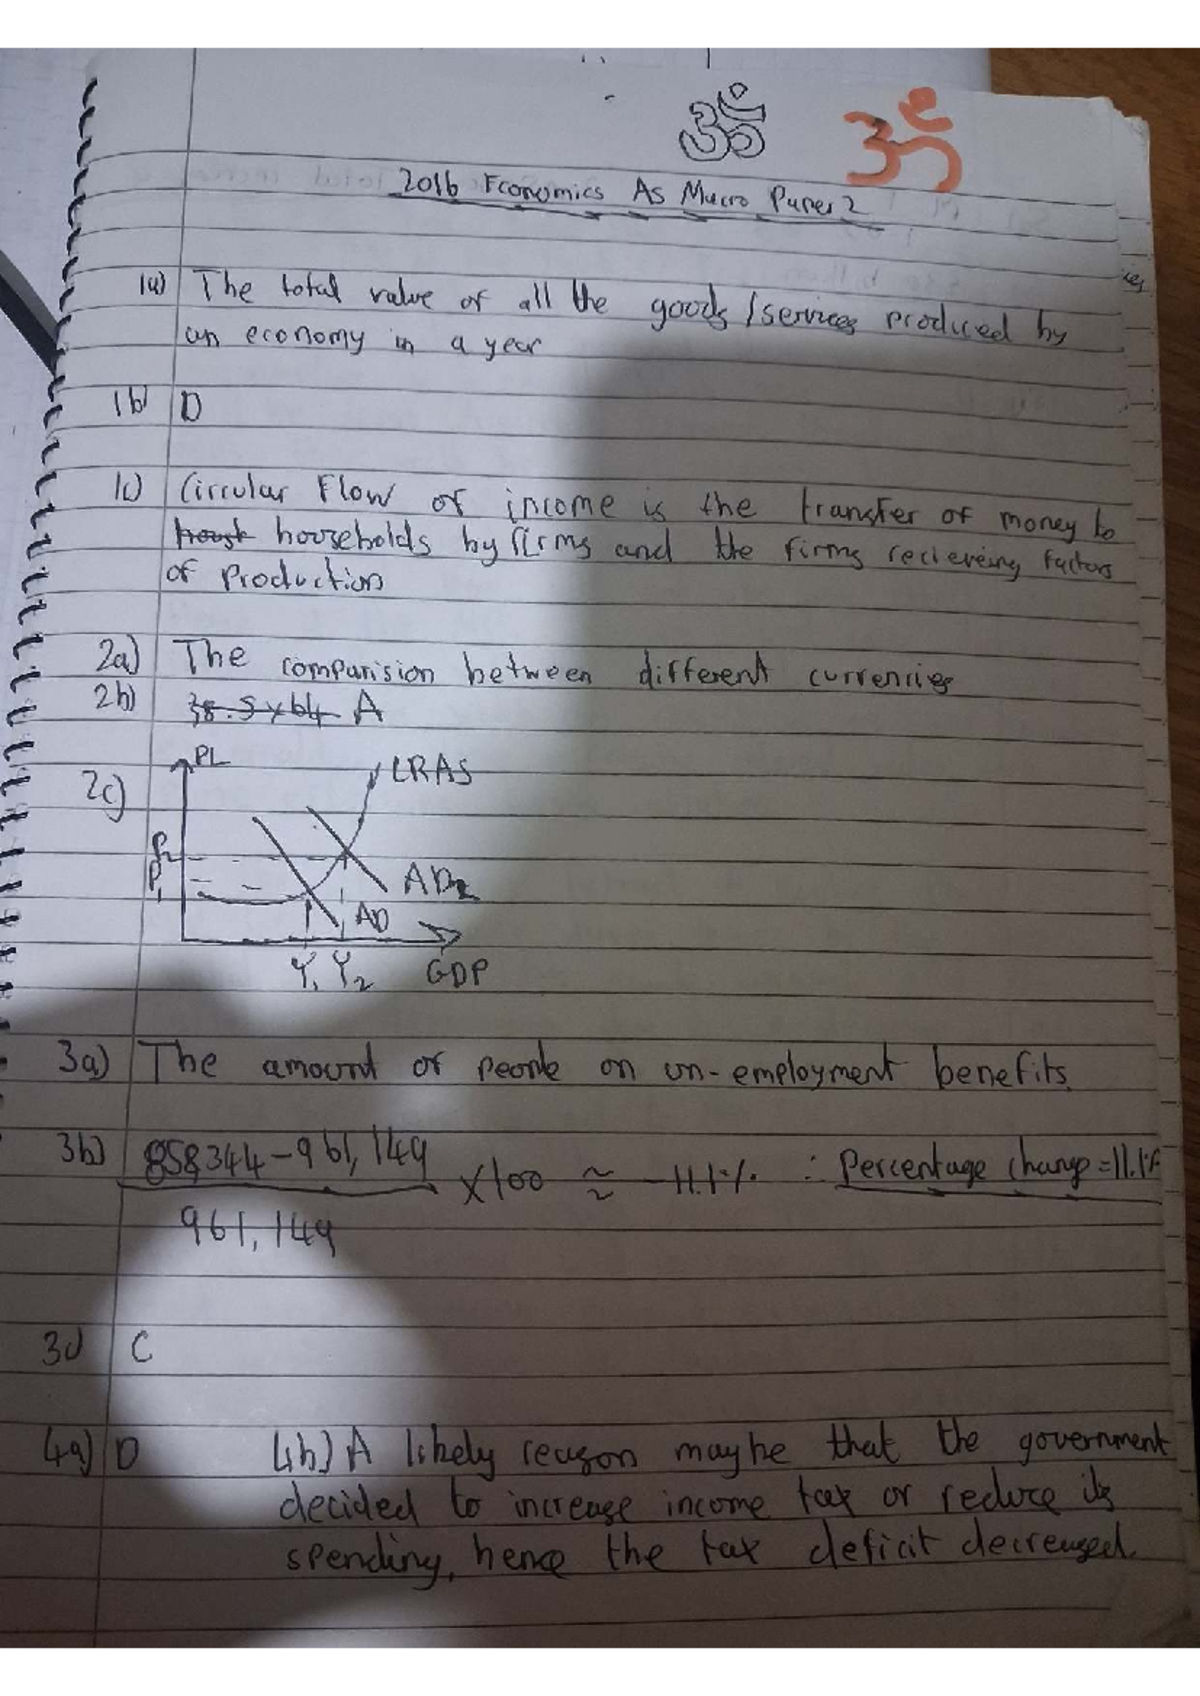 ॐ ॐ
2016 Economics As Macro Paper 2
1a) The total value of all the goods/services produced by
an economy in a year
1b) D
1c) Circular Flow of income is the transfer of money to
housh households by firms and the firms recieveing factors
of production
2a) The comparision between different currencies
2b) 38.5 x 64 A
2c)
PL
LRAS
P2
P1
AD2
AD
Y1 Y2 GDP
3a) The amount of people on un-employment benefits.
3b) 858344 - 961,149 x 100 ≈ -11.1% ∴ Percentage change = 11.1%
961,149
3c) C
4a) D 4b) A likely reason maybe that the government
decided to increase income tax or reduce its
spending, hence the tax deficit decreased.